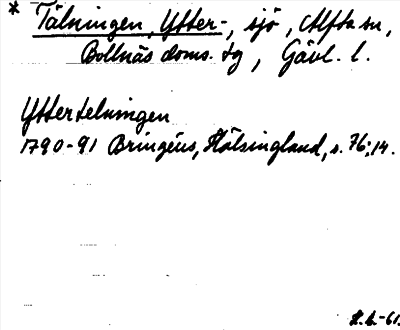 * Tälningen, Ytter-, sjö, Alfta sn,
Bollnäs doms. tg, Gävl. l.
Yttertelningen
1790-91 Bringéus, Hälsingland, s. 76; 14.
-61.